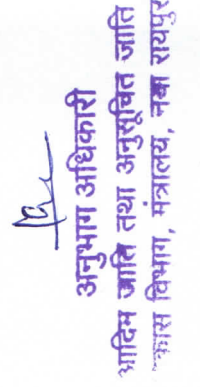 अनुभाग अधिकारी
आदिम जाति तथा अनुसूचित जाति
विभाग, मंत्रालय, नवा रायपुर